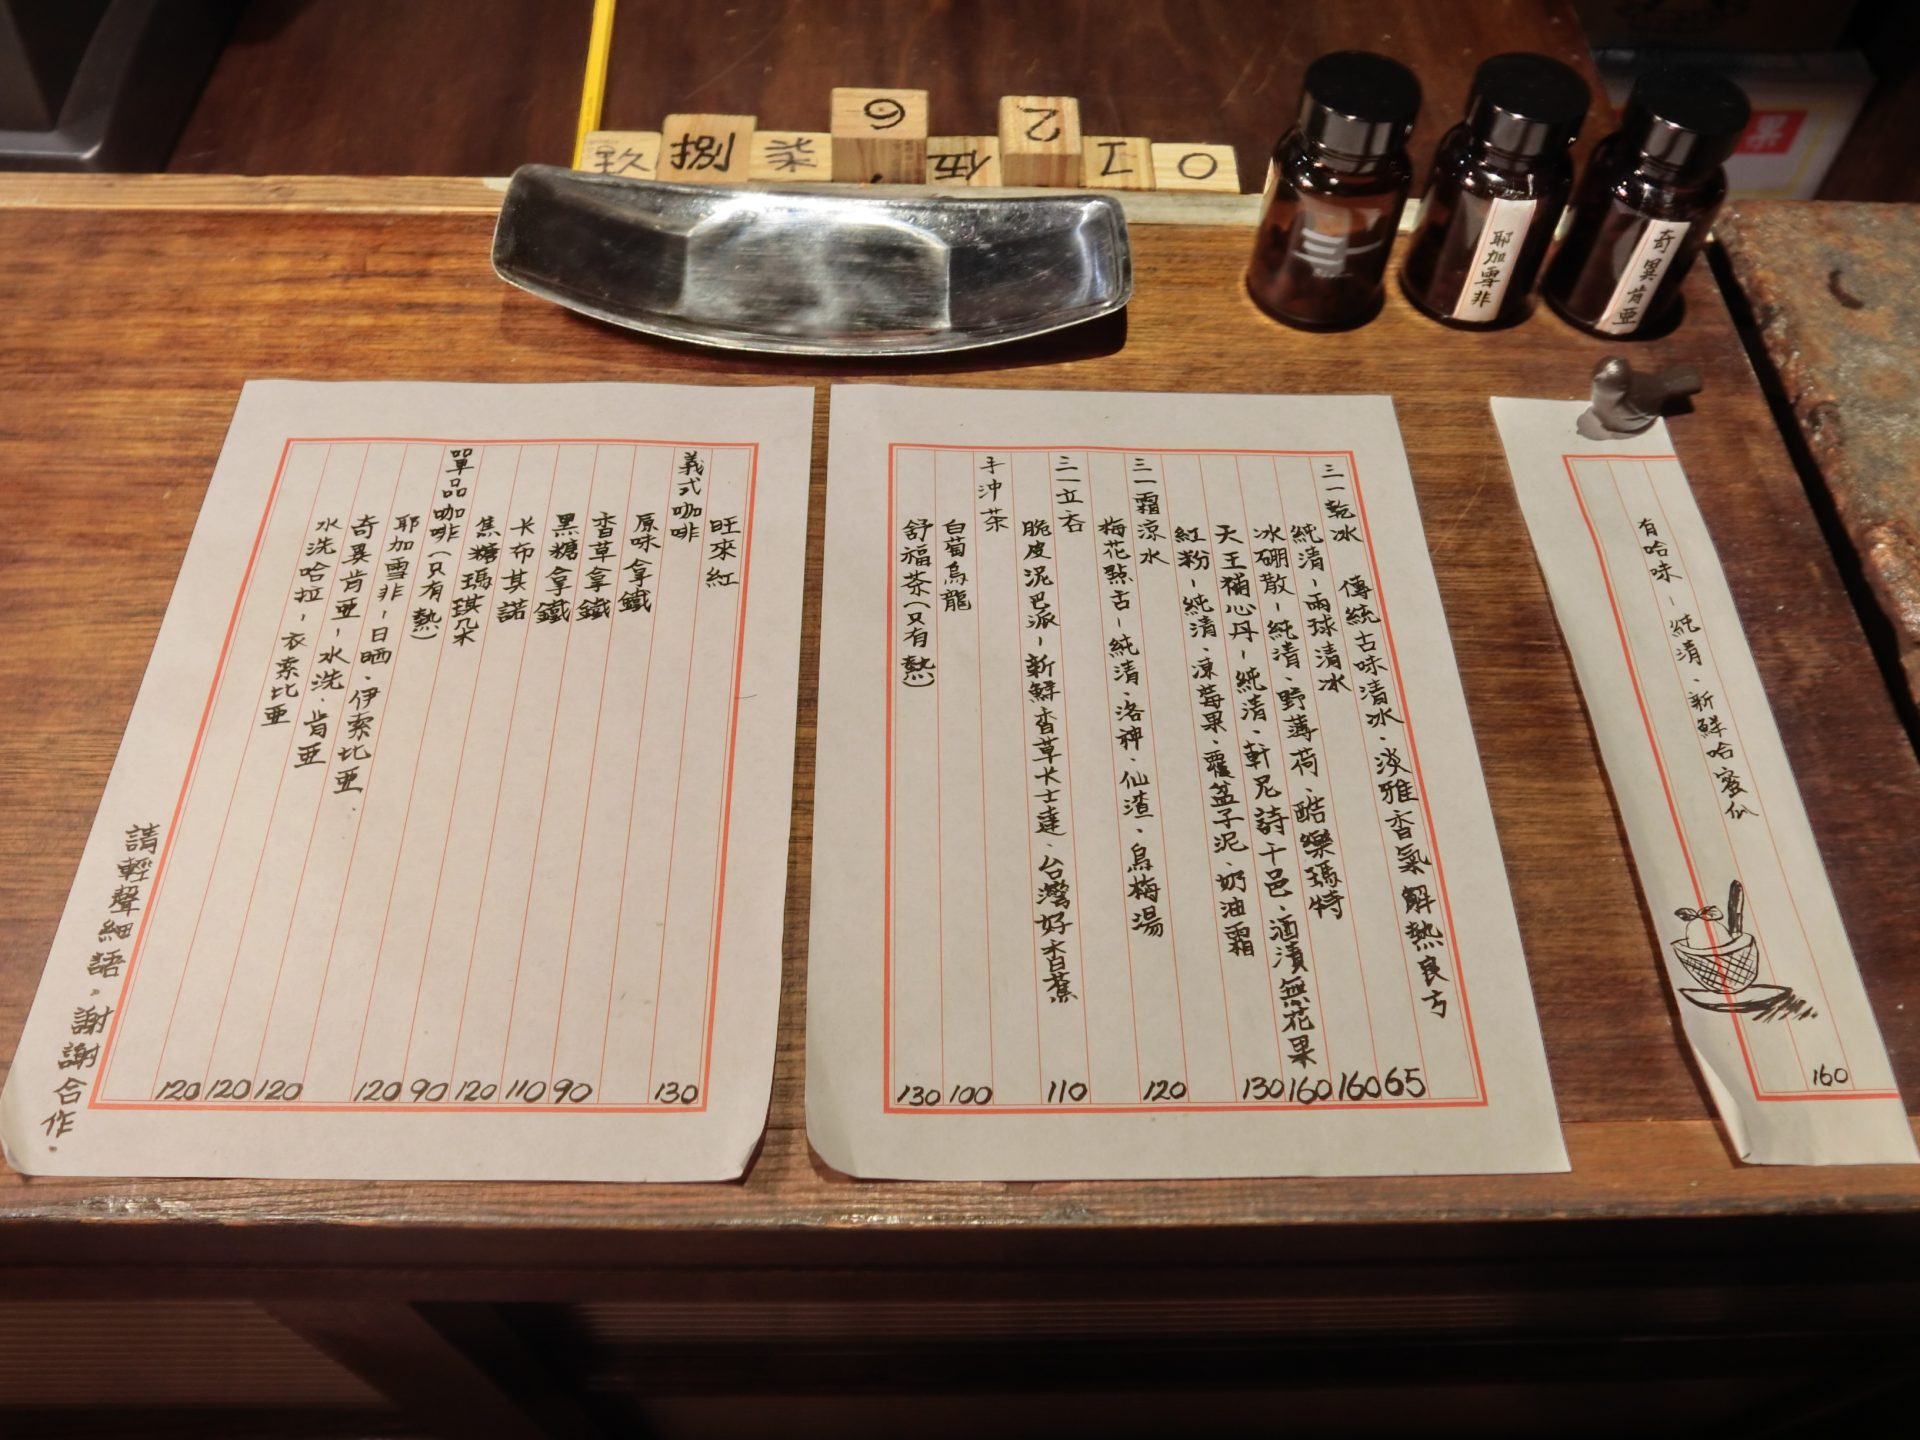 玖 捌 柒 6 伍 2 1 0
耶加雪非
奇異肯亞
果
有哈味-純清、新鮮哈蜜瓜 160
三一乾冰 傳統古味清冰、淡雅香氣解熱良方 65
純清-兩球清冰
冰硼散-純清、野薄荷、酷樂瑪特 160
天王補心丹-純清、軒尼詩干邑、酒漬無花果 160
紅粉-純清、凍莓果、覆盆子泥、奶油霜 130
三一霜涼水
梅花點舌-純清、洛神、仙渣、烏梅湯 120
三一立吞
脆皮泥巴派-新鮮香草卡士達、台灣好香蕉 110
手沖茶
白萄烏龍 100
舒福茶(只有熱) 130
旺來紅 130
義式咖啡
原味拿鐵 90
香草拿鐵 110
黑糖拿鐵 120
卡布其諾 90
焦糖瑪琪朵 120
單品咖啡(只有熱)
耶加雪非-日晒、伊索比亞. 120
奇異肯亞-水洗、肯亞 120
水洗哈拉-衣索比亞 120
請輕聲細語、謝謝合作.